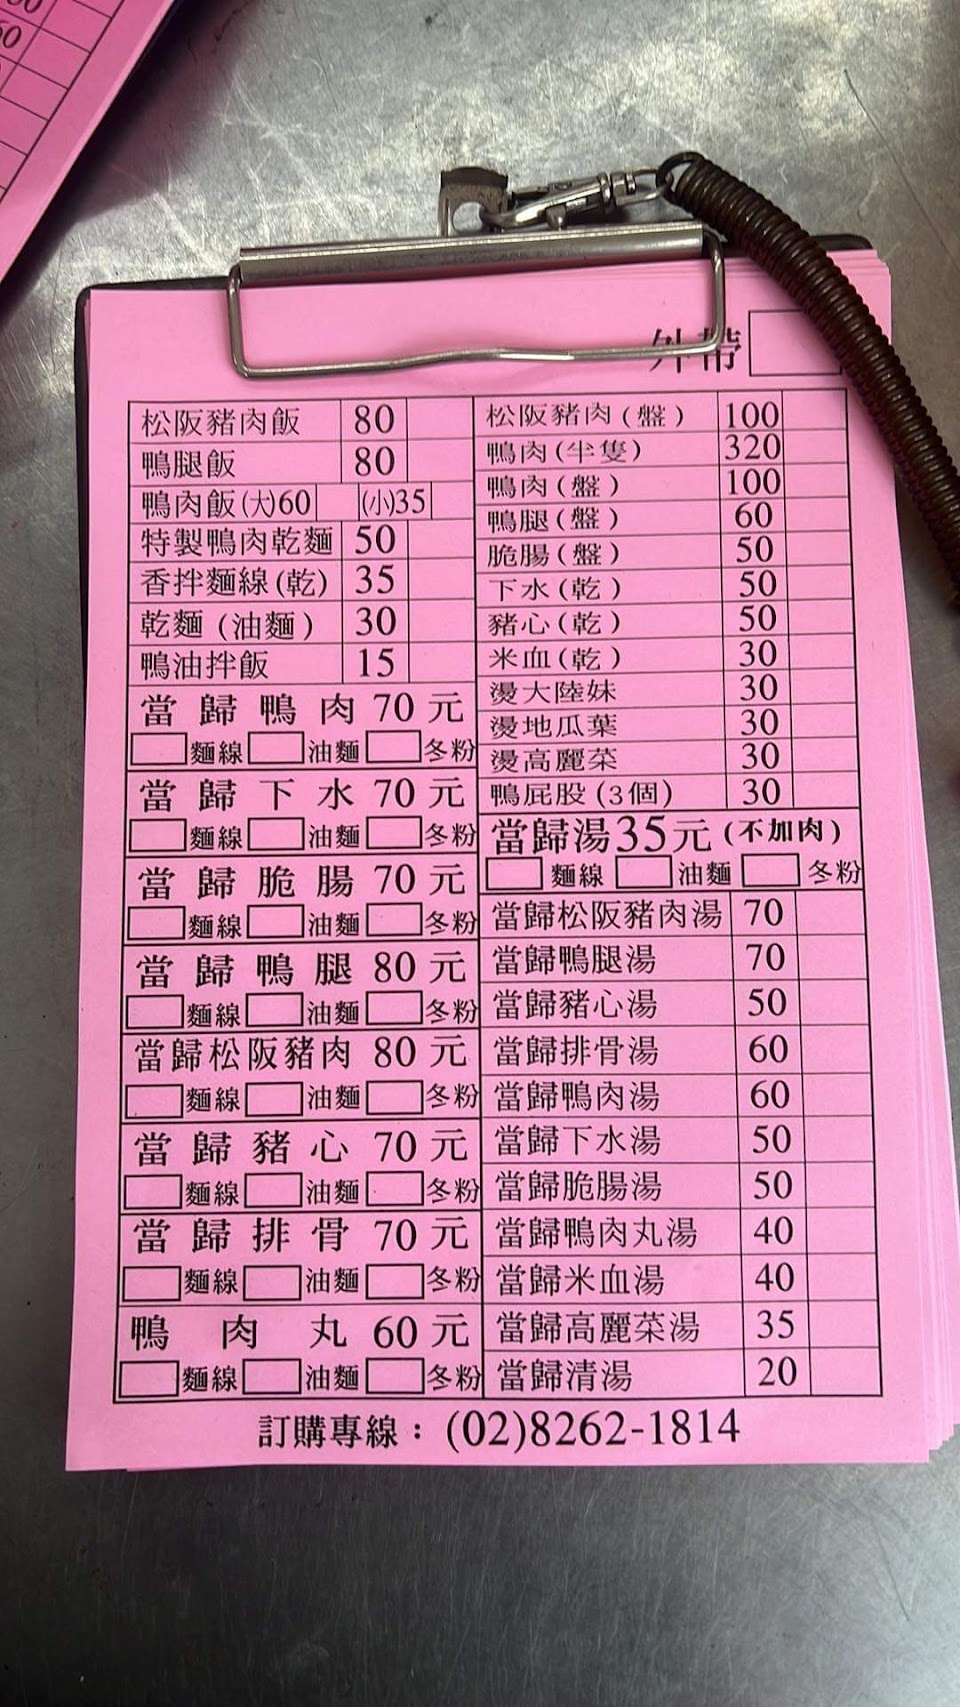 外帶
松阪豬肉飯 80
鴨腿飯 80
鴨肉飯(大)60 (小)35
特製鴨肉乾麵 50
香拌麵線(乾) 35
乾麵(油麵) 30
鴨油拌飯 15
當歸鴨肉 70 元
麵線 油麵 冬粉
當歸下水 70 元
麵線 油麵 冬粉
當歸脆腸 70 元
麵線 油麵 冬粉
當歸鴨腿 80 元
麵線 油麵 冬粉
當歸松阪豬肉 80 元
麵線 油麵 冬粉
當歸豬心 70 元
麵線 油麵 冬粉
當歸排骨 70 元
麵線 油麵 冬粉
鴨肉丸 60 元
麵線 油麵 冬粉
松阪豬肉(盤) 100
鴨肉(半隻) 320
鴨肉(盤) 100
鴨腿(盤) 60
脆腸(盤) 50
下水(乾) 50
豬心(乾) 50
米血(乾) 30
燙大陸妹 30
燙地瓜葉 30
燙高麗菜 30
鴨屁股(3個) 30
當歸湯35元(不加肉)
麵線 油麵 冬粉
當歸松阪豬肉湯 70
當歸鴨腿湯 70
當歸豬心湯 50
當歸排骨湯 60
當歸鴨肉湯 60
當歸下水湯 50
當歸脆腸湯 50
當歸鴨肉丸湯 40
當歸米血湯 40
當歸高麗菜湯 35
當歸清湯 20
訂購專線：(02)8262-1814